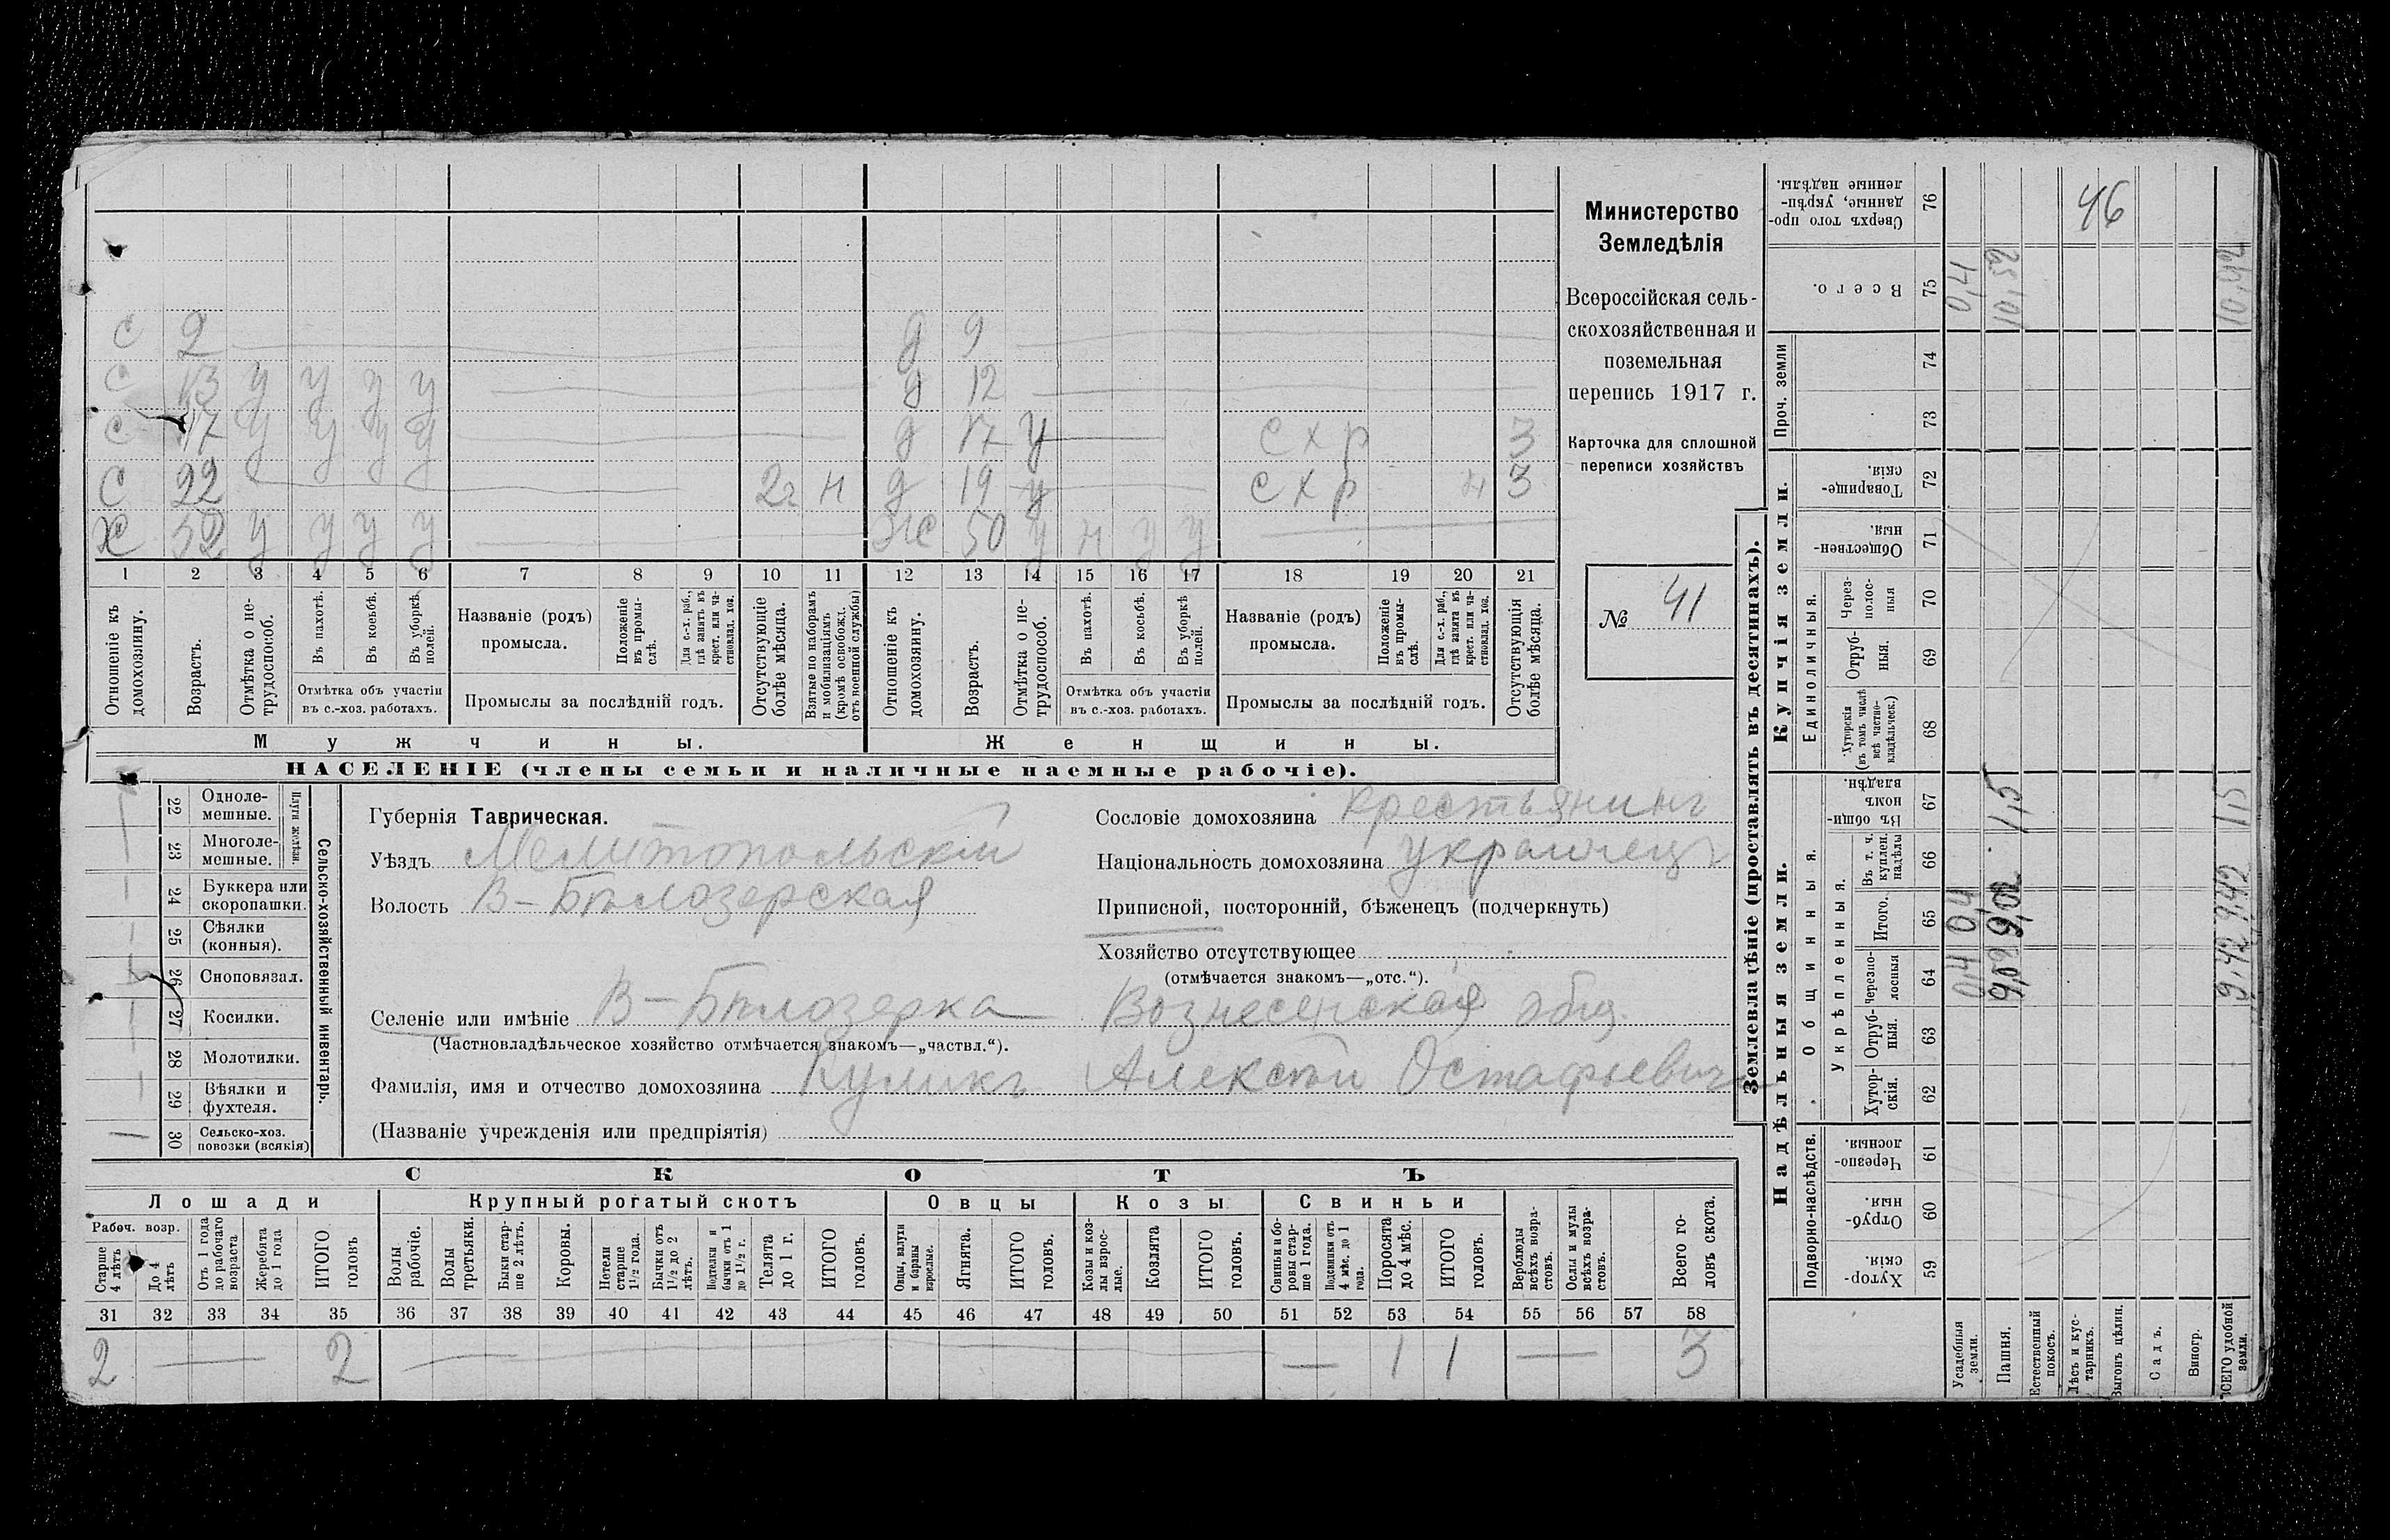 Министерство
Земледѣлія
Всероссійская сель-
скохозяйственная и
поземельная
перепись 1917 г.
Карточка для сплошной
переписи хозяйствъ
№ 41
С 2 д 9
С 13 у у у у д 12
С 17 у у у у д 17 у с х р 3
С 22 2г н д 19 у с х р н 3
Х 52 у у у у же 50 у н у у
1 2 3 4 5 6 7 8 9 10 11 12 13 14 15 16 17 18 19 20 21
Отношеніе къ домохозяину.
Возрастъ.
Отмѣтка о не-трудоспособ.
Въ пахотѣ.
Въ косьбѣ.
Въ уборкѣ полей.
Отмѣтка объ участіи
въ с.-хоз. работахъ.
Названіе (родъ)
промысла.
Положеніе въ промы-слѣ.
Для с.-х. раб., гдѣ занятъ въ крест. или ча-стновлад. хоз.
Промыслы за послѣдній годъ.
Отсутствующіе болѣе мѣсяца.
Взятые по наборамъ и мобилизаціямъ (кромѣ освобожд. отъ военной службы)
Отношеніе къ домохозяину.
Возрастъ.
Отмѣтка о не-трудоспособ.
Въ пахотѣ.
Въ косьбѣ.
Въ уборкѣ полей.
Отмѣтка объ участіи
въ с.-хоз. работахъ.
Названіе (родъ)
промысла.
Положеніе въ промы-слѣ.
Для с.-х. раб., гдѣ занята въ крест. или ча-стновлад. хоз.
Промыслы за послѣдній годъ.
Отсутствующія болѣе мѣсяца.
Мужчины. Женщины.
НАСЕЛЕНІЕ (члены семьи и наличные наемные рабочіе).
Сельско-хозяйственный инвентарь.
Плуги желѣзн.
22 Одноле-мешные.
23 Многоле-мешные.
24 Буккера или скоропашки.
25 Сѣялки (конныя).
26 Сноповязал.
27 Косилки.
28 Молотилки.
29 Вѣялки и фухтеля.
30 Сельско-хоз. повозки (всякія)
Губернія Таврическая.
Уѣздъ Мелитопольскій
Волость В-Бѣлозерская
Сословіе домохозяина крестьянинъ
Національность домохозяина украинецъ
Приписной, посторонній, бѣженецъ (подчеркнуть)
Хозяйство отсутствующее
(отмѣчается знакомъ—„отс.“).
Селеніе или имѣніе В-Бѣлозерка Вознесенская общ.
(Частновладѣльческое хозяйство отмѣчается знакомъ—„частвл.“).
Фамилія, имя и отчество домохозяина Куликъ Алексѣй Остафьевичъ
(Названіе учрежденія или предпріятія)
СКОТЪ
Лошади Крупный рогатый скотъ Овцы Козы Свиньи
Рабоч. возр.
Старше 4 лѣтъ
До 4 лѣтъ
Отъ 1 года до рабочаго возраста
Жеребята до 1 года
ИТОГО головъ
Волы рабочіе.
Волы третьяки.
Быки стар-ше 2 лѣтъ.
Коровы.
Нетели старше 1½ года.
Бычки отъ 1½ до 2 лѣтъ.
Подтелки и бычки отъ 1 до 1½ г.
Телята до 1 г.
ИТОГО головъ.
Овцы, валухи и бараны взрослые.
Ягнята.
ИТОГО головъ.
Козы и коз-лы взрос-лые.
Козлята
ИТОГО головъ.
Свиньи и бо-ровы стар-ше 1 года.
Подсвинки отъ 4 мѣс. до 1 года.
Поросята до 4 мѣс.
ИТОГО головъ.
Верблюды всѣхъ возра-стовъ.
Ослы и мулы всѣхъ возра-стовъ.
Всего го-ловъ скота.
31 32 33 34 35 36 37 38 39 40 41 42 43 44 45 46 47 48 49 50 51 52 53 54 55 56 57 58
2 — 2 — 1 1 — 3
Землевладѣніе (проставлять въ десятинахъ).
Надѣльныя земли. Купчія земли. Проч. земли
Подворно-наслѣдств. Общинныя. Единоличныя.
Укрѣпленныя.
59 Хутор-скія.
60 Отруб-ныя.
61 Черезпо-лосныя.
62 Хутор-скія.
63 Отруб-ныя.
64 Черезпо-лосныя 0,4 9,02 9,42
65 Итого. 0,4 9,02 9,42
66 Въ т. ч. куплен. надѣлы
67 Въ общи-номъ владѣн. 1,5 1,5
68 Хуторскія (въ томъ числѣ всѣ частно-владѣльческ.)
69 Отруб-ныя.
70 Через-полос-ныя
71 Обществен-ныя.
72 Товарище-скія.
73
74
75 Всего. 0,4 10,52 10,92
76 Сверхъ того про-данные, укрѣп-ленные надѣлы. 46
Усадебныя земли.
Пашня.
Естественный покосъ.
Лѣсъ и кус-тарникъ.
Выгонъ цѣлин.
Садъ.
Виногр.
ВСЕГО удобной земли.